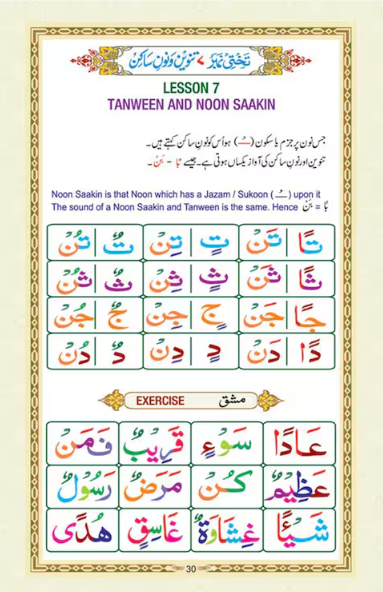 تختی نمبر ۷ تنوین و نون ساکن
LESSON 7
TANWEEN AND NOON SAAKIN
جس نون پر جزم یا سکون (ـْـ) ہو اُس کو نون ساکن کہتے ہیں۔
تنوین اور نون ساکن کی آواز یکساں ہوتی ہے۔ جیسے بًا - بَنْ۔
Noon Saakin is that Noon which has a Jazam / Sukoon (ـْـ) upon it
The sound of a Noon Saakin and Tanween is the same. Hence بًا = بَنْ
تًا تَنْ تٍ تِنْ تٌ تُنْ
ثًا ثَنْ ثٍ ثِنْ ثٌ ثُنْ
جًا جَنْ جٍ جِنْ جٌ جُنْ
دًا دَنْ دٍ دِنْ دٌ دُنْ
EXERCISE مشق
عَادًا سَوْءٍ قَرِيْبٌ فَمَنْ
عَظِيْمٌ كُنْ مَرَضٌ رَسُوْلٌ
شَيْئًا غِشَاوَةٌ غَاسِقٍ هُدًى
30